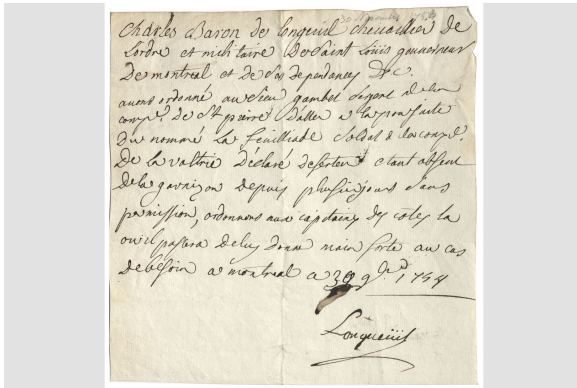 Charles Baron de Longeuil chevallier de
Lordre et militaire de Saint Louis gouverneur
de montreal et de ses dependances &c.
avons ordonné au Sieur gambet sergent de la
comp.e de St pierre d'aller a la poursuite
du nommé La feuilliade soldat de la comp.e
de la valtrie déclaré deserteur etant absent
de la garnizon depuis plusieurs jours sans
permission, ordonnons aux capitaines des cotes la
ou il passera de luy donné main forte au cas
de besoin a montreal a 9bre
Longueüil